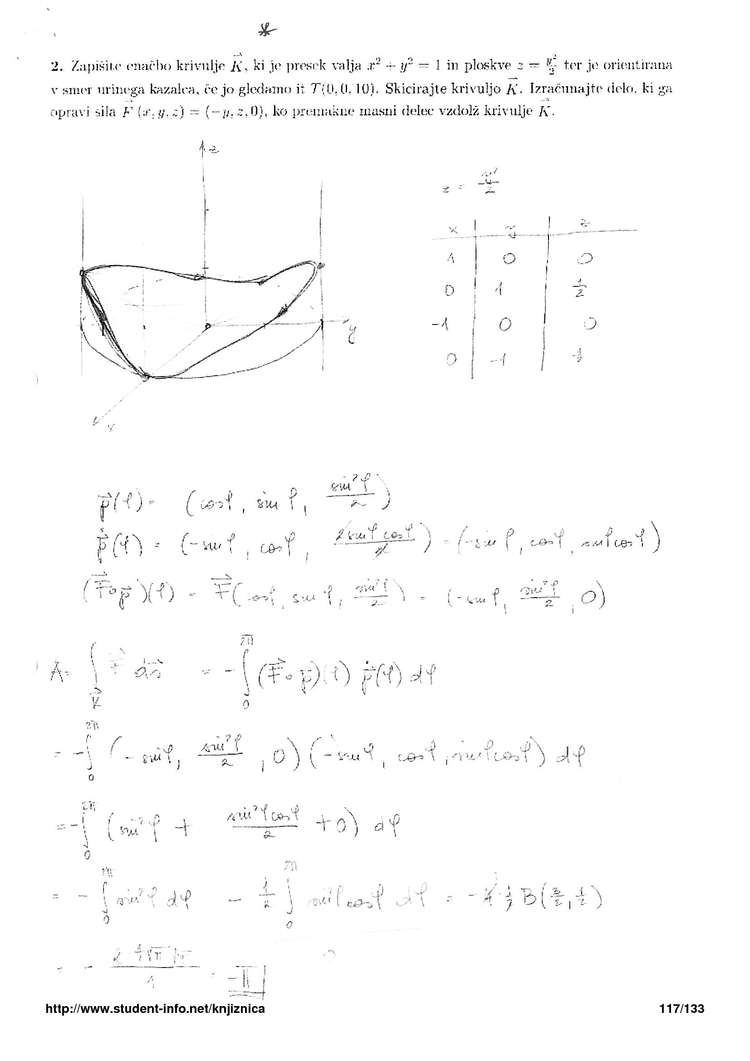 *
2. Zapišite enačbo krivulje K⃗, ki je presek valja x² + y² = 1 in ploskve z = y²/2 ter je orientirana
v smer urinega kazalca, če jo gledamo it T(0, 0, 10). Skicirajte krivuljo K⃗. Izračunajte delo, ki ga
opravi sila F⃗ (x, y, z) = (−y, z, 0), ko premakne masni delec vzdolž krivulje K⃗.
z
y
x
z = y²/2
x y z
1 0 0
0 1 1/2
-1 0 0
0 -1 1/2
p⃗(φ) = (cosφ, sinφ, sin²φ/2)
p⃗˙(φ) = (-sinφ, cosφ, 2sinφcosφ/2) = (-sinφ, cosφ, sinφcosφ)
(F⃗∘p⃗)(φ) = F⃗(cosφ, sinφ, sin²φ/2) = (-sinφ, sin²φ/2, 0)
A = ∫_K⃗ F⃗ ds⃗ = -∫₀^2π (F⃗∘p⃗)(φ) p⃗˙(φ) dφ
= -∫₀^2π (-sinφ, sin²φ/2, 0)(-sinφ, cosφ, sinφcosφ) dφ
= -∫₀^2π (sin²φ + sin²φcosφ/2 + 0) dφ
= -∫₀^2π sin²φ dφ - 1/2 ∫₀^2π sin²φcosφ dφ = -4·1/2 B(3/2, 1/2)
= - 2 1/2 √π √π / 1 = -π
http://www.student-info.net/knjiznica
117/133